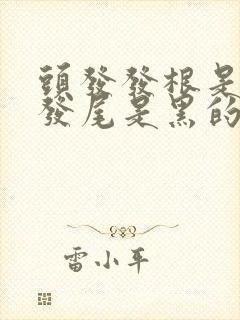 頭發發根是
發尾是黑的
雷小平